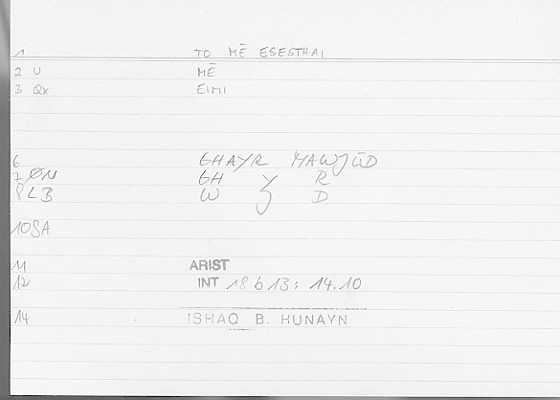 1 TO MĒ ESESTHAI
2 U MĒ
3 Qx EIMI
6 GHAYR MAWJŪD
7 ØN GH Y R
8 LB W J D
10 SA
11 ARIST
12 INT 18 b 13; 14.10
14 ISHAQ B. HUNAYN